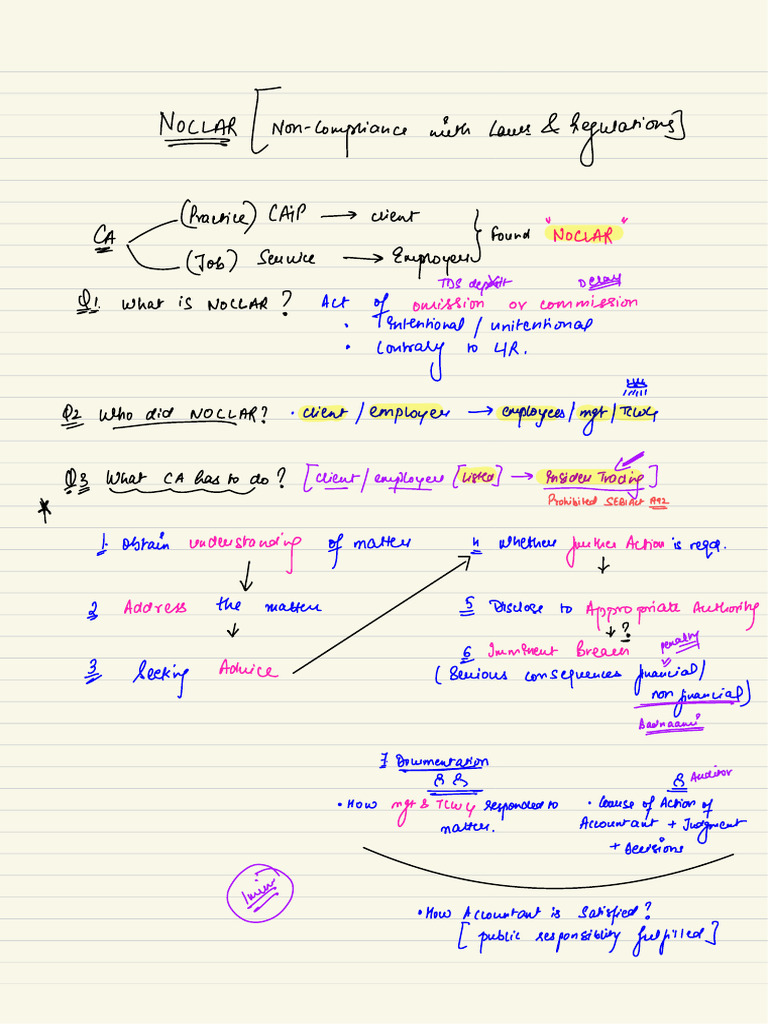 NOCLAR [Non-compliance with Laws & Regulations]
CA
(Practice) CAiP → client
(Job) Service → Employers
} found "NOCLAR"
TDS deposit Delay
Q1. What is NOCLAR? Act of omission or commission
• Intentional / unitentional
• Contrary to L/R.
Q2 Who did NOCLAR? • client / employer → employees / mgt / TCWG
Q3 What CA has to do? [client / employer [Listed] → Insider Trading]
Prohibited SEBI Act 1992
*
1. Obtain understanding of matter
↓
2 Address the matter
↓
3 Seeking Advice
4 Whether further Action is reqd.
↓
5 Disclose to Appropriate Authority
↓ ?
6 Imminent Breach penalty
(Serious consequences financial /
non financial)
Badnaami
7 Documentation
• How mgt & TCWG responded to
matter.
Auditor
• Course of Action of
Accountant + Judgment
+ Decisions
1 min
• How Accountant is Satisfied?
[public responsiblity fulfilled]